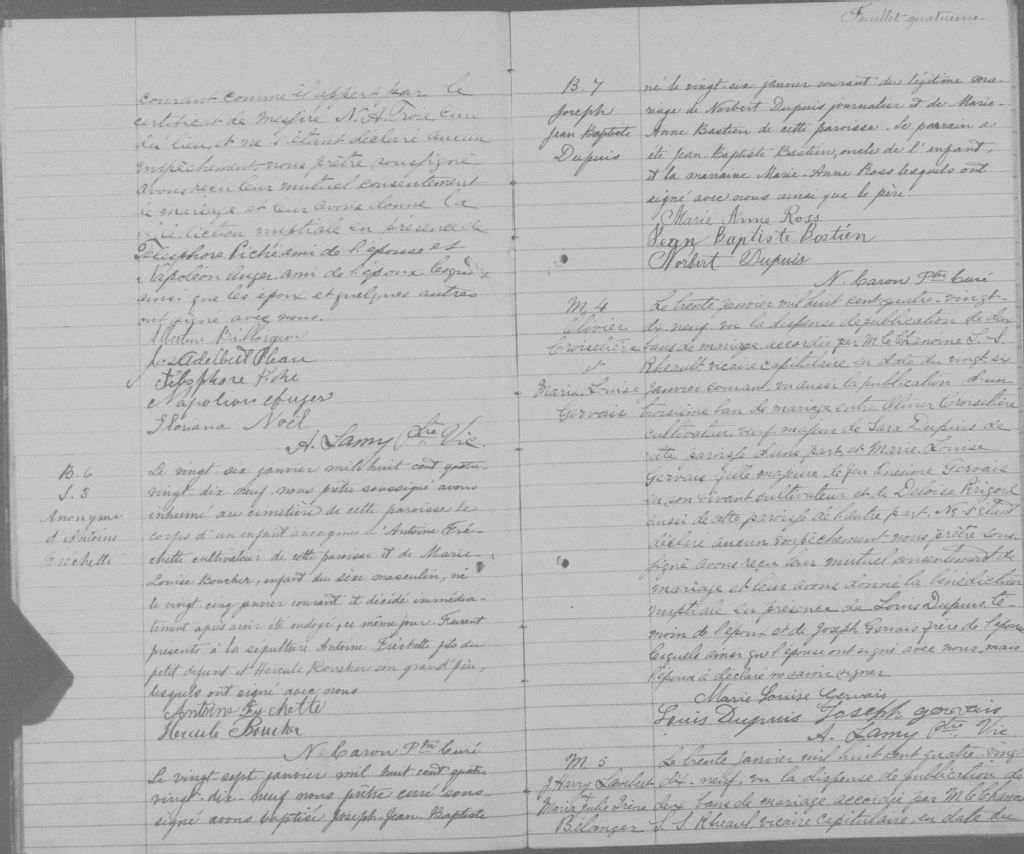 Feuillet quatrième
courant comme il appert par le
certificat de messire N. A. Troie Curé
du lieu, et ne s'étant déclaré aucun
empêchement, nous prêtre soussigné
avons reçu leur mutuel consentement
de mariage et leur avons donné la
bénédiction nuptiale en présence de
Télesphore Piché ami de l'épouse et
Napoléon Auger ami de l'époux lesquels
ainsi que les époux et quelques autres
ont signé avec nous.
Baillargeon
Adelbert Pleau
Télesphore Piché
Napoléon Auger
Floriana Noël
A. Lamy Ptre Vic.
B. 6
S. 3
Anonyme
d'Antoine
Fréchette
Le vingt six janvier mil huit cent quatre-
vingt-dix neuf, nous prêtre soussigné avons
inhumé au cimetière de cette paroisse le
corps d'un enfant anonyme d'Antoine Fré-
chette cultivateur de cette paroisse et de Marie-
Louise Boucher, enfant du sexe masculin, né
le vingt cinq janvier courant et décédé immédia-
tement après avoir été ondoyé, ce même jour. Furent
présents à la sépulture Antoine Fréchette père du
petit défunt et Hercule Boucher son grand'père,
lesquels ont signé avec nous
Antoine Frechette
Hercule Boucher
N. Caron Ptre Curé
Le vingt-sept janvier mil huit cent quatre
vingt-dix-neuf nous prêtre curé sous-
signé avons baptisé Joseph-Jean-Baptiste
B. 7
Joseph
Jean Baptiste
Dupuis
né le vingt-six janvier courant du légitime ma-
riage de Norbert Dupuis journalier et de Marie-
Anne Bastien de cette paroisse. Le parrain a
été Jean-Baptiste Bastien, oncle de l'enfant,
et la marraine Marie-Anne Ross lesquels ont
signé avec nous ainsi que le père.
Marie Anne Ross
Jean Baptiste Bastien
Norbert Dupuis
N. Caron Ptre Curé
M. 4
Olivier
Croiselière
&
Marie Louise
Gervais
Le trente janvier mil huit cent quatre-vingt-
dix neuf, vu la dispense de publication de deux
bans de mariage accordée par M. le Chanoine L. S.
Rheault vicaire capitulaire en date du vingt six
janvier courant, vu aussi la publication d'un
troisième ban de mariage entre Olivier Croiselière
cultivateur veuf majeur de Sara Dupuis de
cette paroisse d'une part, et Marie Louise
Gervais fille majeure de feu Onésime Gervais
en son vivant cultivateur et de Deloïse
aussi de cette paroisse de l'autre part. Ne s'étant
déclaré aucun empêchement nous prêtre sous-
signé avons reçu leur mutuel consentement de
mariage et leur avons donné la bénédiction
nuptiale en présence de Louis Dupuis té-
moin de l'époux et de Joseph Gervais frère de l'épouse
lesquels ainsi que l'épouse ont signé avec nous, mais
l'époux a déclaré ne savoir signer
Marie Louise Gervais
Louis Dupuis Joseph gervais
A. Lamy Ptre Vic
M. 5
J. Harry Lambert
Marie Julie Irène
Bélanger
Le trente janvier mil huit cent quatre vingt
dix-neuf, vu la dispense de publication de
deux bans de mariage accordée par M. le Chanoine
L. S. Rheault, vicaire capitulaire, en date du